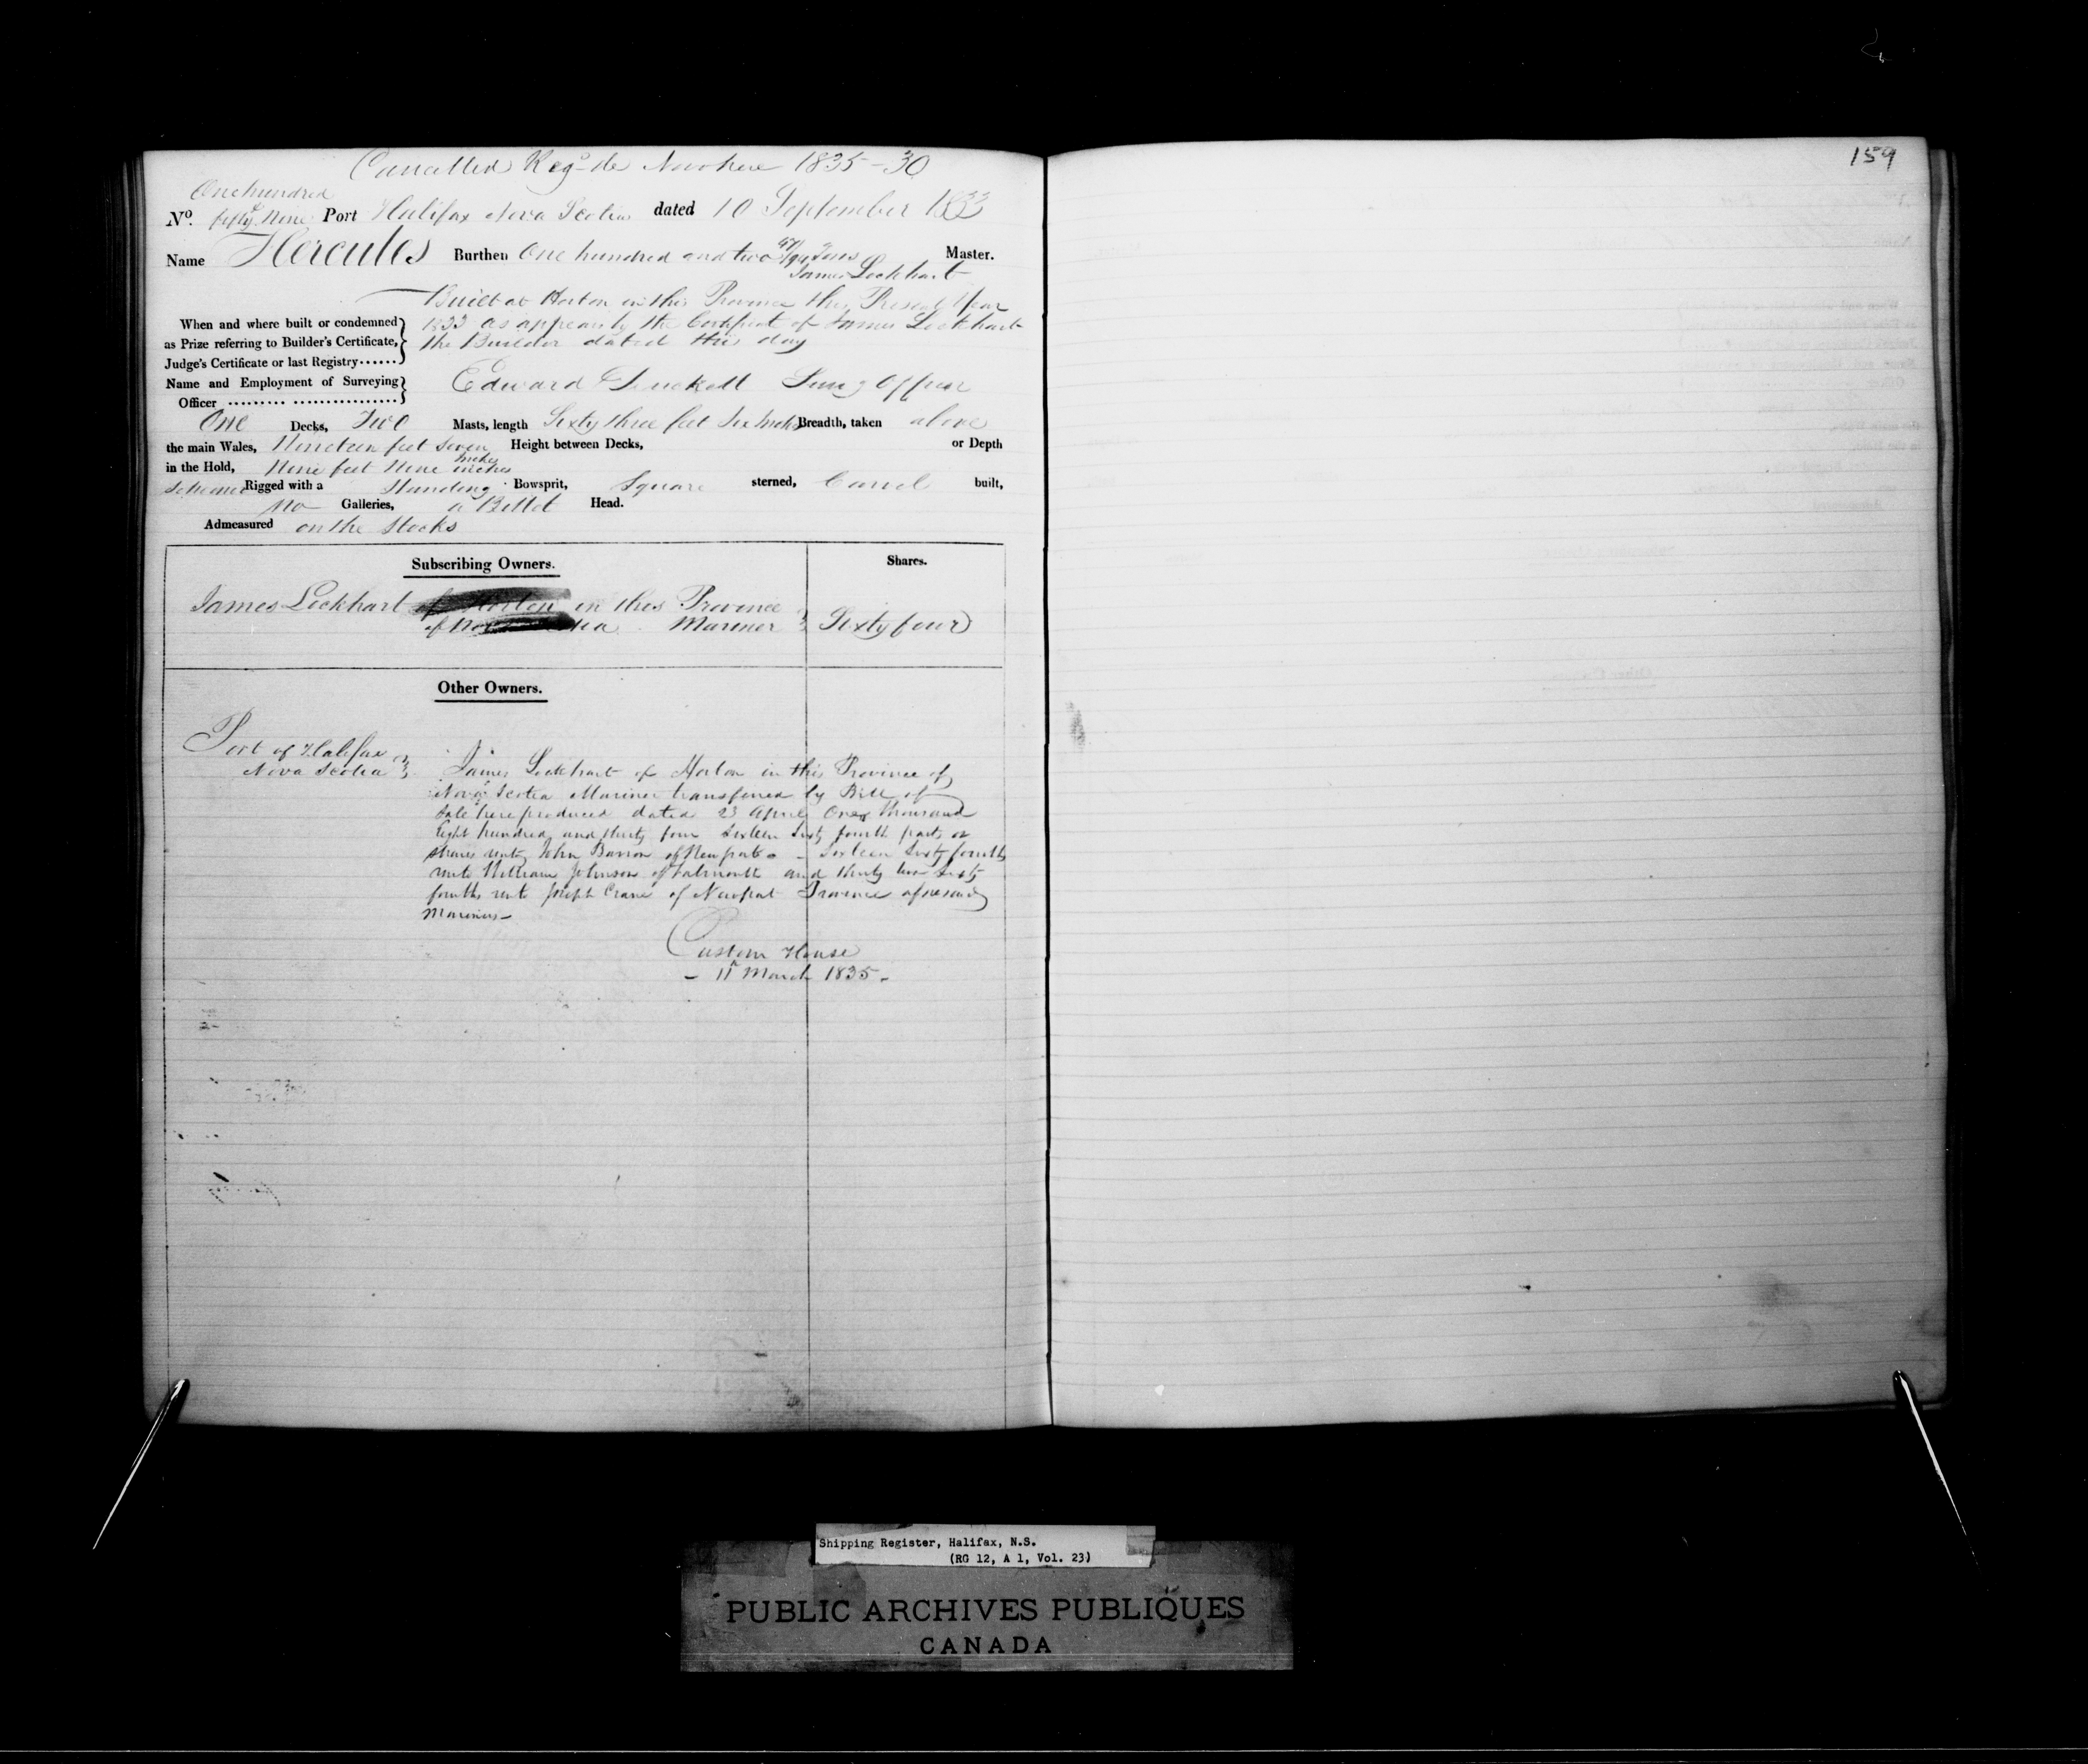 Cancelled Reg- de Novo here 1835-30
One hundred
No. fifty Nine Port Halifax Nova Scotia dated 10 September 1833
Name Hercules Burthen One hundred and two 47/94 Tons Master.
James Lockhart
Built at Horton in this Province this Present Year
When and where built or condemned 1833 as appears by the Certificate of James Lockhart
as Prize referring to Builder's Certificate, the Builder dated this day
Judge's Certificate or last Registry......
Name and Employment of Surveying Edward Surv'g Officer
Officer ......... ................
One Decks, Two Masts, length Sixty three feet Six Inches Breadth, taken above
the main Wales, Nineteen feet Seven Inches Height between Decks, or Depth
in the Hold, Nine feet Nine inches
Schooner Rigged with a Standing Bowsprit, Square sterned, Carvel built,
No Galleries, a Billet Head.
Admeasured on the Stocks
Subscribing Owners. Shares.
James Lockhart of Horton in this Province
of Nova Scotia Mariner Sixty four
Other Owners.
Port of Halifax
Nova Scotia
James Lockhart of Horton in this Province of
Nova Scotia Mariner transferred by Bill of
Sale here produced dated 23 April One thousand
Eight hundred and thirty four Sixteen Sixty fourth parts or
shares unto John Barron of Newport - Sixteen Sixty fourths
unto William Johnson of Falmouth and thirty two Sixty
fourths unto Joseph Crane of Newport Province aforesaid
Mariners-
Custom House
- 11th March 1835 -
159
Shipping Register, Halifax, N.S.
(RG 12, A 1, Vol. 23)
PUBLIC ARCHIVES PUBLIQUES
CANADA